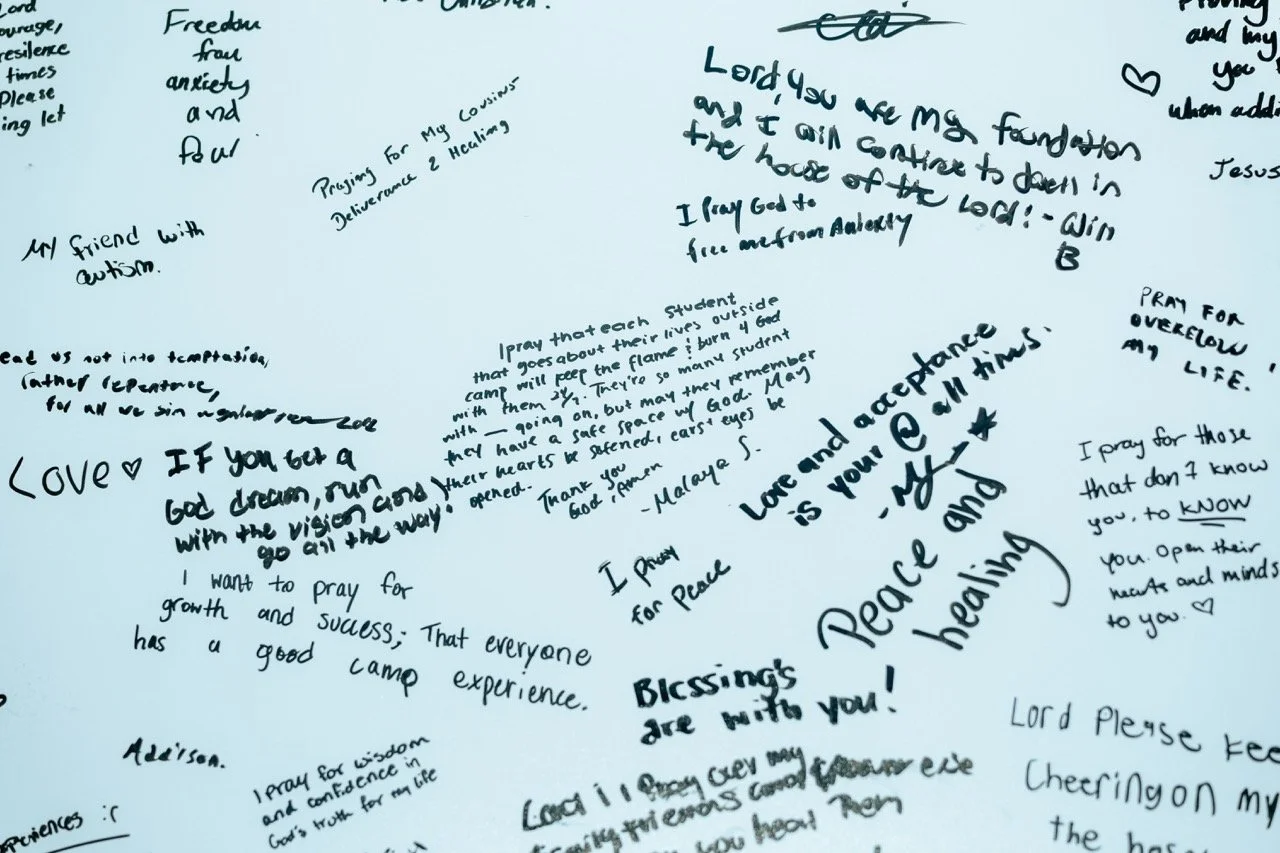 Lord
ourage,
resilence
times
Please
ing let
Freedom
from
anxiety
and
fear
Children.
Praying For My Cousins
Deliverance & Healing
Lord, you are my foundation
and I will continue to dwell in
the house of the Lord! - Win
B
I Pray God to
free me from Anxiety
and my
you
when addi
Jesus
My friend with
autism.
PRAY FOR
OVERFLOW
MY
LIFE.
ead us not into temptation,
rather repentance,
for all we sin
I pray that each student
that goes about their lives outside
camp will keep the flame & burn 4 God
with them 24/7. They're so many student
with — going on, but may they remember
they have a safe space w/ God. May
their hearts be safened, ears + eyes be
opened.
Thank you
God, Amen
- Malaya J.
Love and acceptance
is your @ all times.
Love ♡
IF you Get a
God dream, run
with the vision and
go all the way!
I pray for those
that don't know
you, to KNOW
you. Open their
hearts and minds
to you. ♡
I want to pray for
growth and success; That everyone
has a good camp experience.
I pray
for Peace
Peace and
healing
Blessing's
are with you!
Addison.
I pray for wisdom
and confidence in
God's truth for my life
experiences :(
Lord I Pray over my
family friends and
you heal Them
Lord Please kee
Cheering on my
the